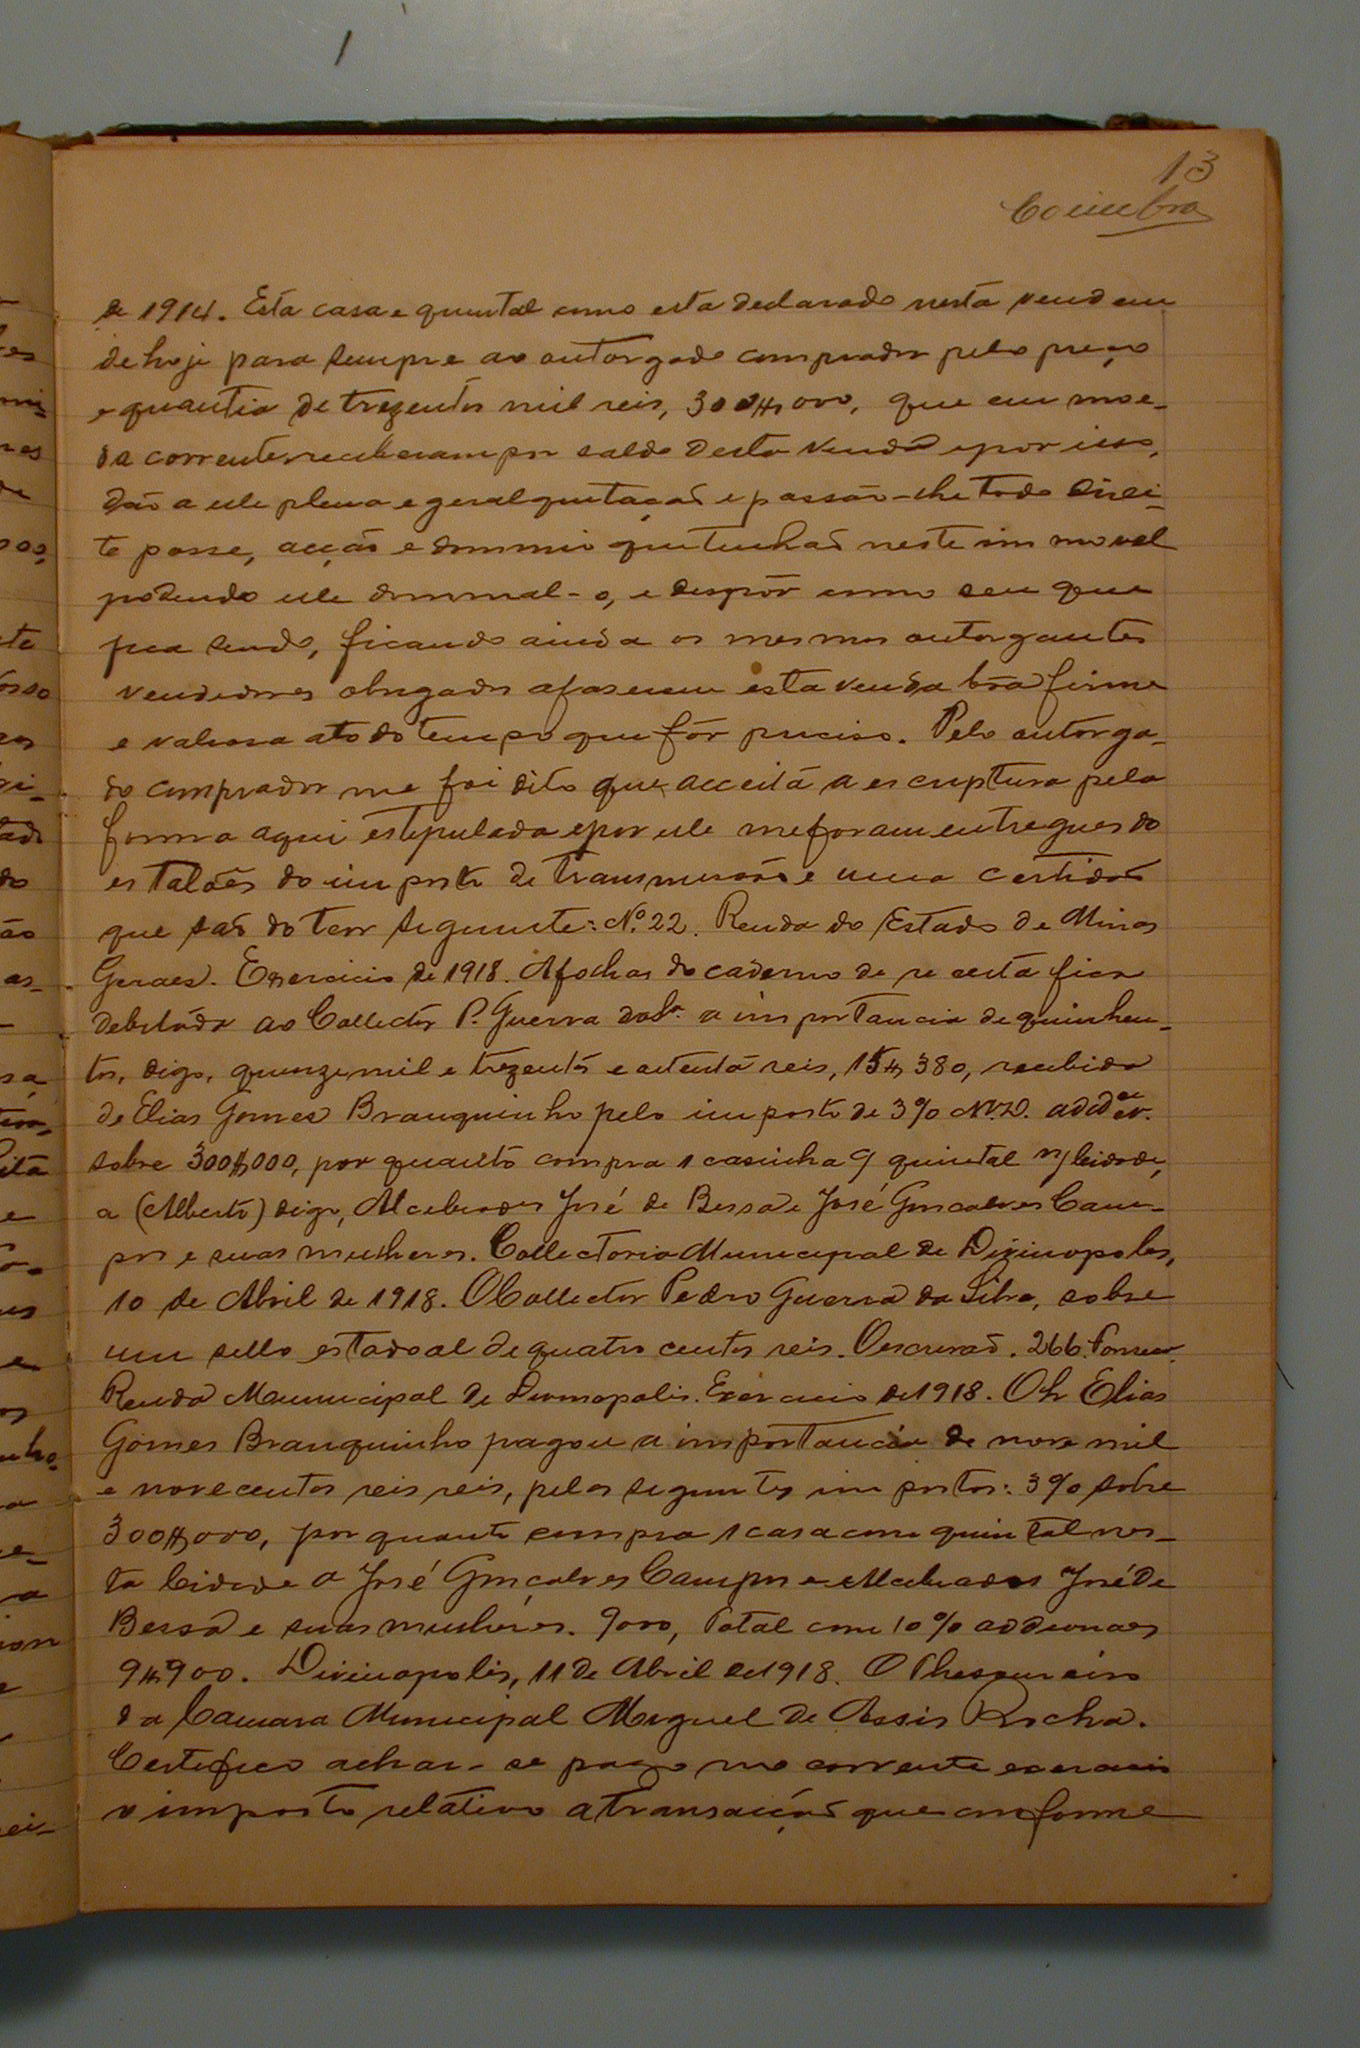 13
Coimbra
de 1914. Esta casa e quintal como esta declarado nesta vendem
de hoje para sempre ao outorgado comprador pelo preço
e quantia de trezentos mil reis, 300$000, que em moe-
da corrente receberam por saldo desta venda e por isso,
dão a elle plena e geral quitaçaõ e passão-lhe todo direi-
to posse, acção e dominio que tinhaõ neste immovel
podendo elle dominal-o, e dispôr como seu que
fica sendo, ficando ainda os mesmos outorgantes
vendedores obrigados afaserem esta venda bôa firme
e valiosa atodo tempo que fôr preciso. Pelo outorga-
do comprador me foi dito que acceita a escriptura pela
forma aqui estipulada e por elle me foram entregues do
es talões do imposto de transmissão e uma certidaõ
que saõ do teor seguinte: Nº. 22. Renda do Estado de Minas
Geraes. Exercicio de 1918. Afolhas do caderno de receita fica
debitada ao Collector P. Guerra da Sª. a importancia de quinhen-
tos, digo, quinze mil e trezentos e oitenta reis, 15$380, recebida
de Elias Gomes Branquinho pelo imposto de 3% N.V.D. add
sobre 300$000, por quanto compra 1 casinha quintal n/ cidade,
a (Alberto) digo, Alcebiades José de Bessa e José Goncalves Cam-
pos e suas mulheres. Collectoria Municipal de Divinopolis,
10 de Abril de 1918. O Collector Pedro Guerra da Silva, sobre
um sello estadoal de quatro centos reis. O escrivaõ. 266.
Renda Municipal de Divinopolis. Exercicio de 1918. O Sr Elias
Gomes Branquinho pagou a importancia de nove mil
e novecentos reis reis, pelos seguintes impostos: 3% sobre
300$000, por quanto compra 1 casa com quintal nes-
ta Cidade a José Gonçalves Campos e Alcebiades José de
Bessa e suas mulhéres. 9000, Total com 10% addicionaes
9$900. Divinopolis, 11 de Abril de 1918. O Thesoureiro
da Camara Municipal Miguel de Assis Rocha.
Certefico achar-se pago no corrente exercicio
o imposto relativo a transacçaõ que conforme